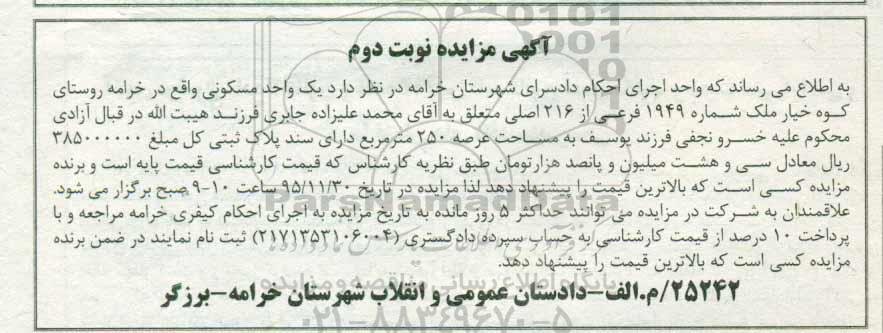 آگهی مزایده نوبت دوم
به اطلاع می رساند که واحد اجرای احکام دادسرای شهرستان خرامه در نظر دارد یک واحد مسکونی واقع در خرامه روستای
کوه خیار ملک شماره ۱۹۴۹ فرعی از ۲۱۶ اصلی متعلق به آقای محمد علیزاده جابری فرزند هیبت الله در قبال آزادی
محکوم علیه خسرو نجفی فرزند یوسف به مساحت عرصه ۲۵۰ مترمربع دارای سند پلاک ثبتی کل مبلغ ۳۸۵۰۰۰۰۰۰
ریال معادل سی و هشت میلیون و پانصد هزارتومان طبق نظریه کارشناس که قیمت کارشناسی قیمت پایه است و برنده
مزایده کسی است که بالاترین قیمت را پیشنهاد دهد لذا مزایده در تاریخ ۹۵/۱۱/۳۰ ساعت ۱۰-۹ صبح برگزار می شود.
علاقمندان به شرکت در مزایده می توانند حداکثر ۵ روز مانده به تاریخ مزایده به اجرای احکام کیفری خرامه مراجعه و با
پرداخت ۱۰ درصد از قیمت کارشناسی به حساب سپرده دادگستری (۲۱۷۱۳۵۳۱۰۶۰۰۴) ثبت نام نمایند در ضمن برنده
مزایده کسی است که بالاترین قیمت را پیشنهاد دهد.
۲۵۲۴۲/م.الف-دادستان عمومی و انقلاب شهرستان خرامه-برزگر
ParsNamadData
پایگاه اطلاع رسانی مناقصه و مزایده
۰۲۱-۸۸۳۴۹۶۷۰-۵